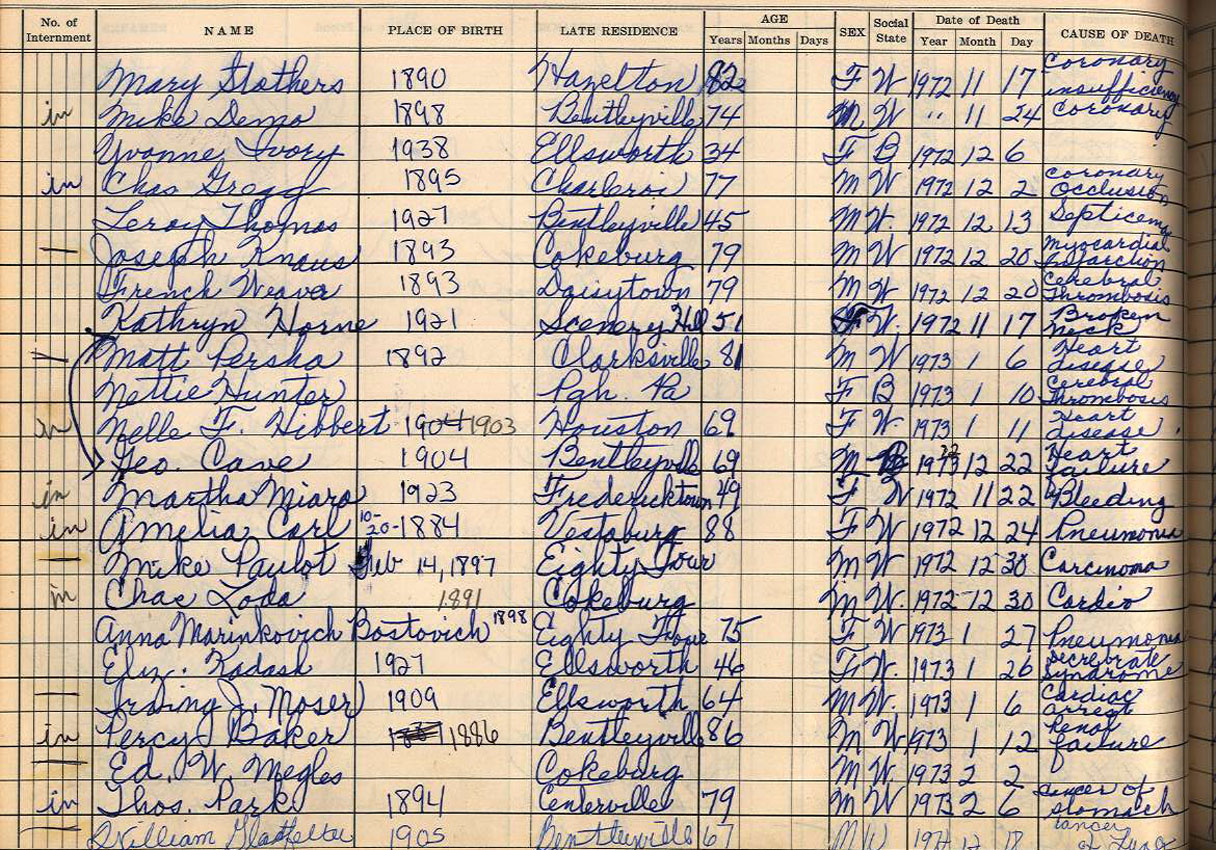 No. of Internment NAME PLACE OF BIRTH LATE RESIDENCE AGE Years Months Days SEX Social State Date of Death Year Month Day CAUSE OF DEATH
Mary Stathers 1890 Hazelton 82 F W 1972 11 17 Coronary insufficiency
in Mike Demo 1898 Bentleyville 74 M W " 11 24 Coronary
Yvonne Ivory 1938 Ellsworth 34 F B 1972 12 6
in Chas Gregg 1895 Charleroi 77 M W 1972 12 2 Coronary Occlusion
Leroy Thomas 1927 Bentleyville 45 M W. 1972 12 13
— Joseph Knaus 1893 Cokeburg 79 M W 1972 12 20 Myocardial Infarction
French Weaver 1893 Daisytown 79 M W 1972 12 20 Cerebral Thrombosis
Kathryn Horne 1921 Scenery Hill 51 F W. 1972 11 17 Broken neck
— Matt Persha 1892 Clarksville 81 M W 1973 1 6 Heart disease
Nettie Hunter Pgh. Pa F B 1973 1 10 Cerebral Thrombosis
in Nelle F. Hibbert 1904 1903 Houston 69 F W. 1973 1 11 Heart disease
Geo. Cave 1904 Bentleyville 69 M 1973 72 12 22 Heart failure
in Martha Miara 1923 Fredericktown 49 F W 1972 11 22 Bleeding
in Amelia Carl 10-20-1884 Vestaburg 88 F W 1972 12 24 Pneumonia
— Mike Paulot Feb 14, 1897 Eighty Four M W 1972 12 30 Carcinoma
in Chas Loda 1891 Cokeburg M W. 1972 12 30 Cardio
Anna Marinkovich Bostovich 1898 Eighty Four 75 F W 1973 1 27 Pneumonia
Eliz. Kadash 1927 Ellsworth 46 F W. 1973 1 26 Syndrome
— Irving J. Moser 1909 Ellsworth 64 M W. 1973 1 6 Cardiac arrest
in Percy Baker 1886 Bentleyville 86 M W 1973 1 12 Renal failure
— Ed. W. Megles Cokeburg M W. 1973 2 2
in Thos. Park 1894 Centerville 79 M W 1973 2 6 Cancer of stomach
— William 1905 Bentleyville 67 M W 12 18 Cancer of Lung